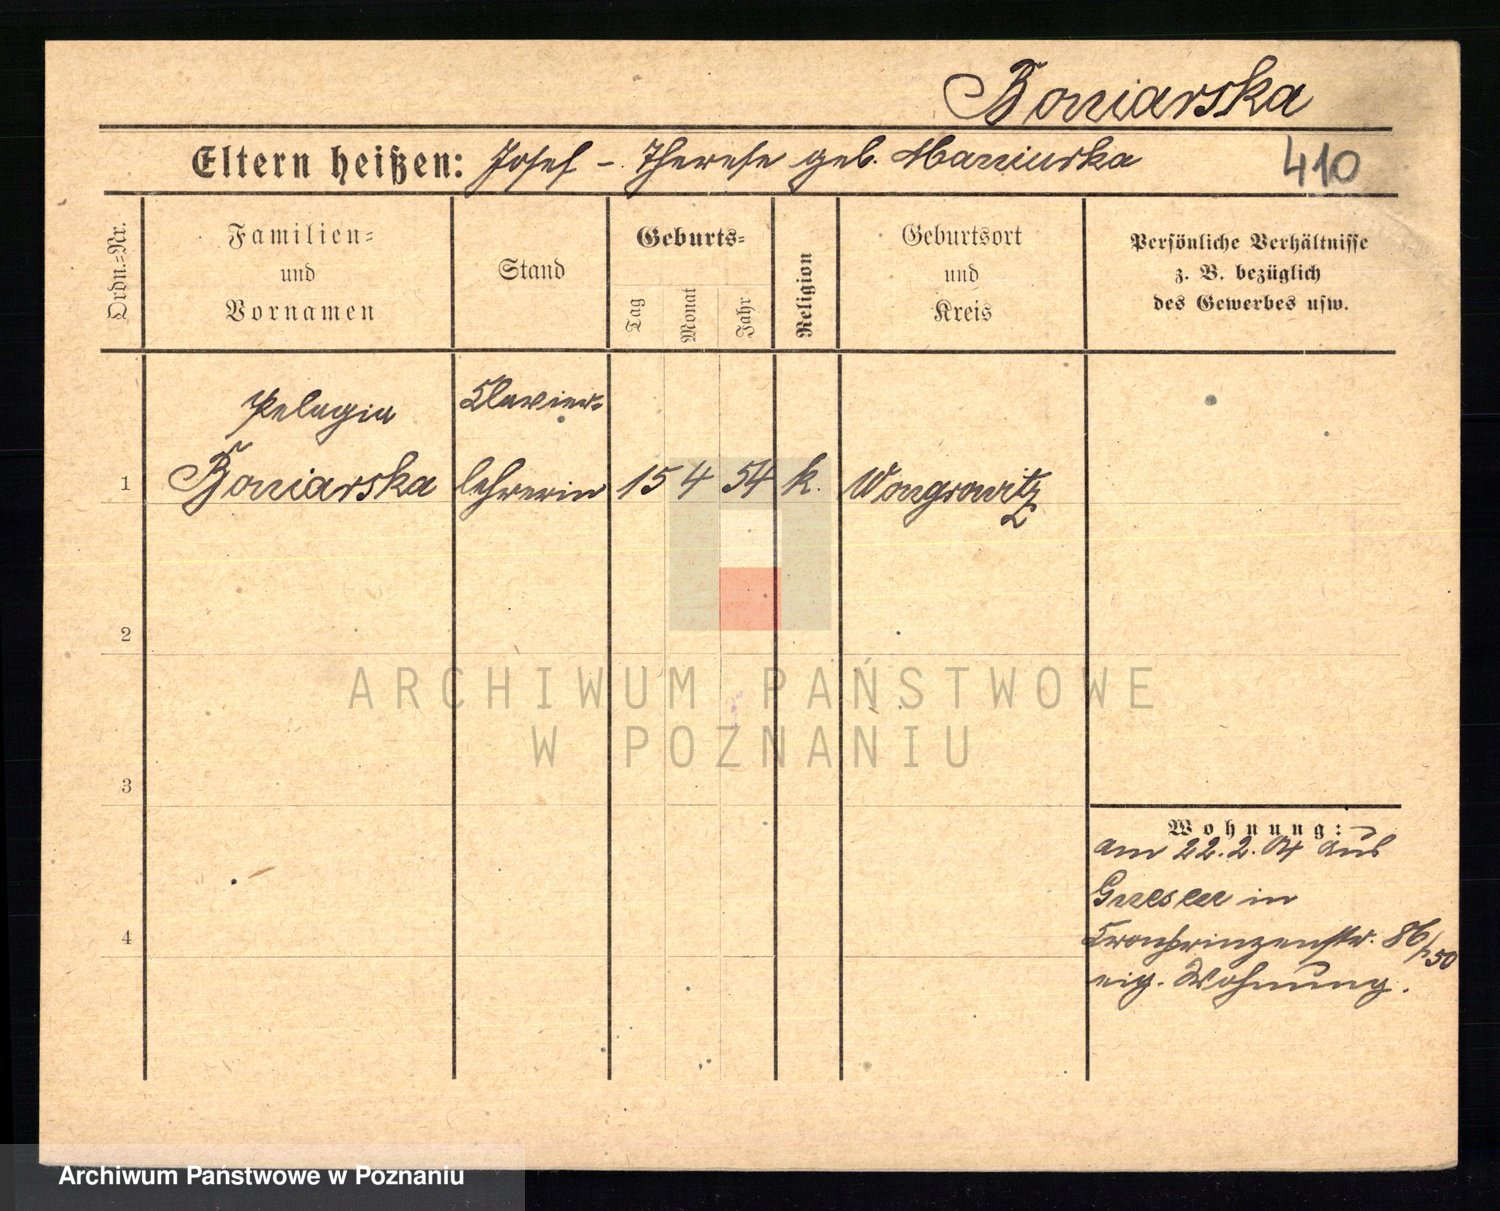 Boniarska
Eltern heißen: Josef – Therese geb. Maniurka
410
Ordn.-Nr.
Familien-
und
Vornamen
Stand
Geburts-
Tag
Monat
Jahr
Religion
Geburtsort
und
Kreis
Persönliche Verhältnisse
z. B. bezüglich
des Gewerbes usw.
Pelagia
Clavier-
1 Boniarska lehrerin 15 4 54 k. Wongrowitz
2
ARCHIWUM PAŃSTWOWE
W POZNANIU
3
Wohnung:
am 22.2.04 aus
Gnesen in
Kronprinzenstr. 86/150
4
eig. Wohnung.
Archiwum Państwowe w Poznaniu